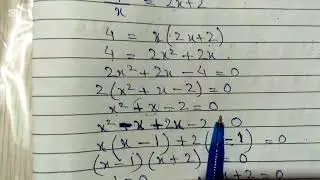 x = 2x+2
4 = x(2x+2)
4 = 2x² + 2x
2x² + 2x - 4 = 0
2(x² + x - 2) = 0
x² + x - 2 = 0
x² - x + 2x - 2 = 0
x(x-1) + 2(x-1) = 0
(x-1)(x+2) = 0
= 0 x+2 = 0